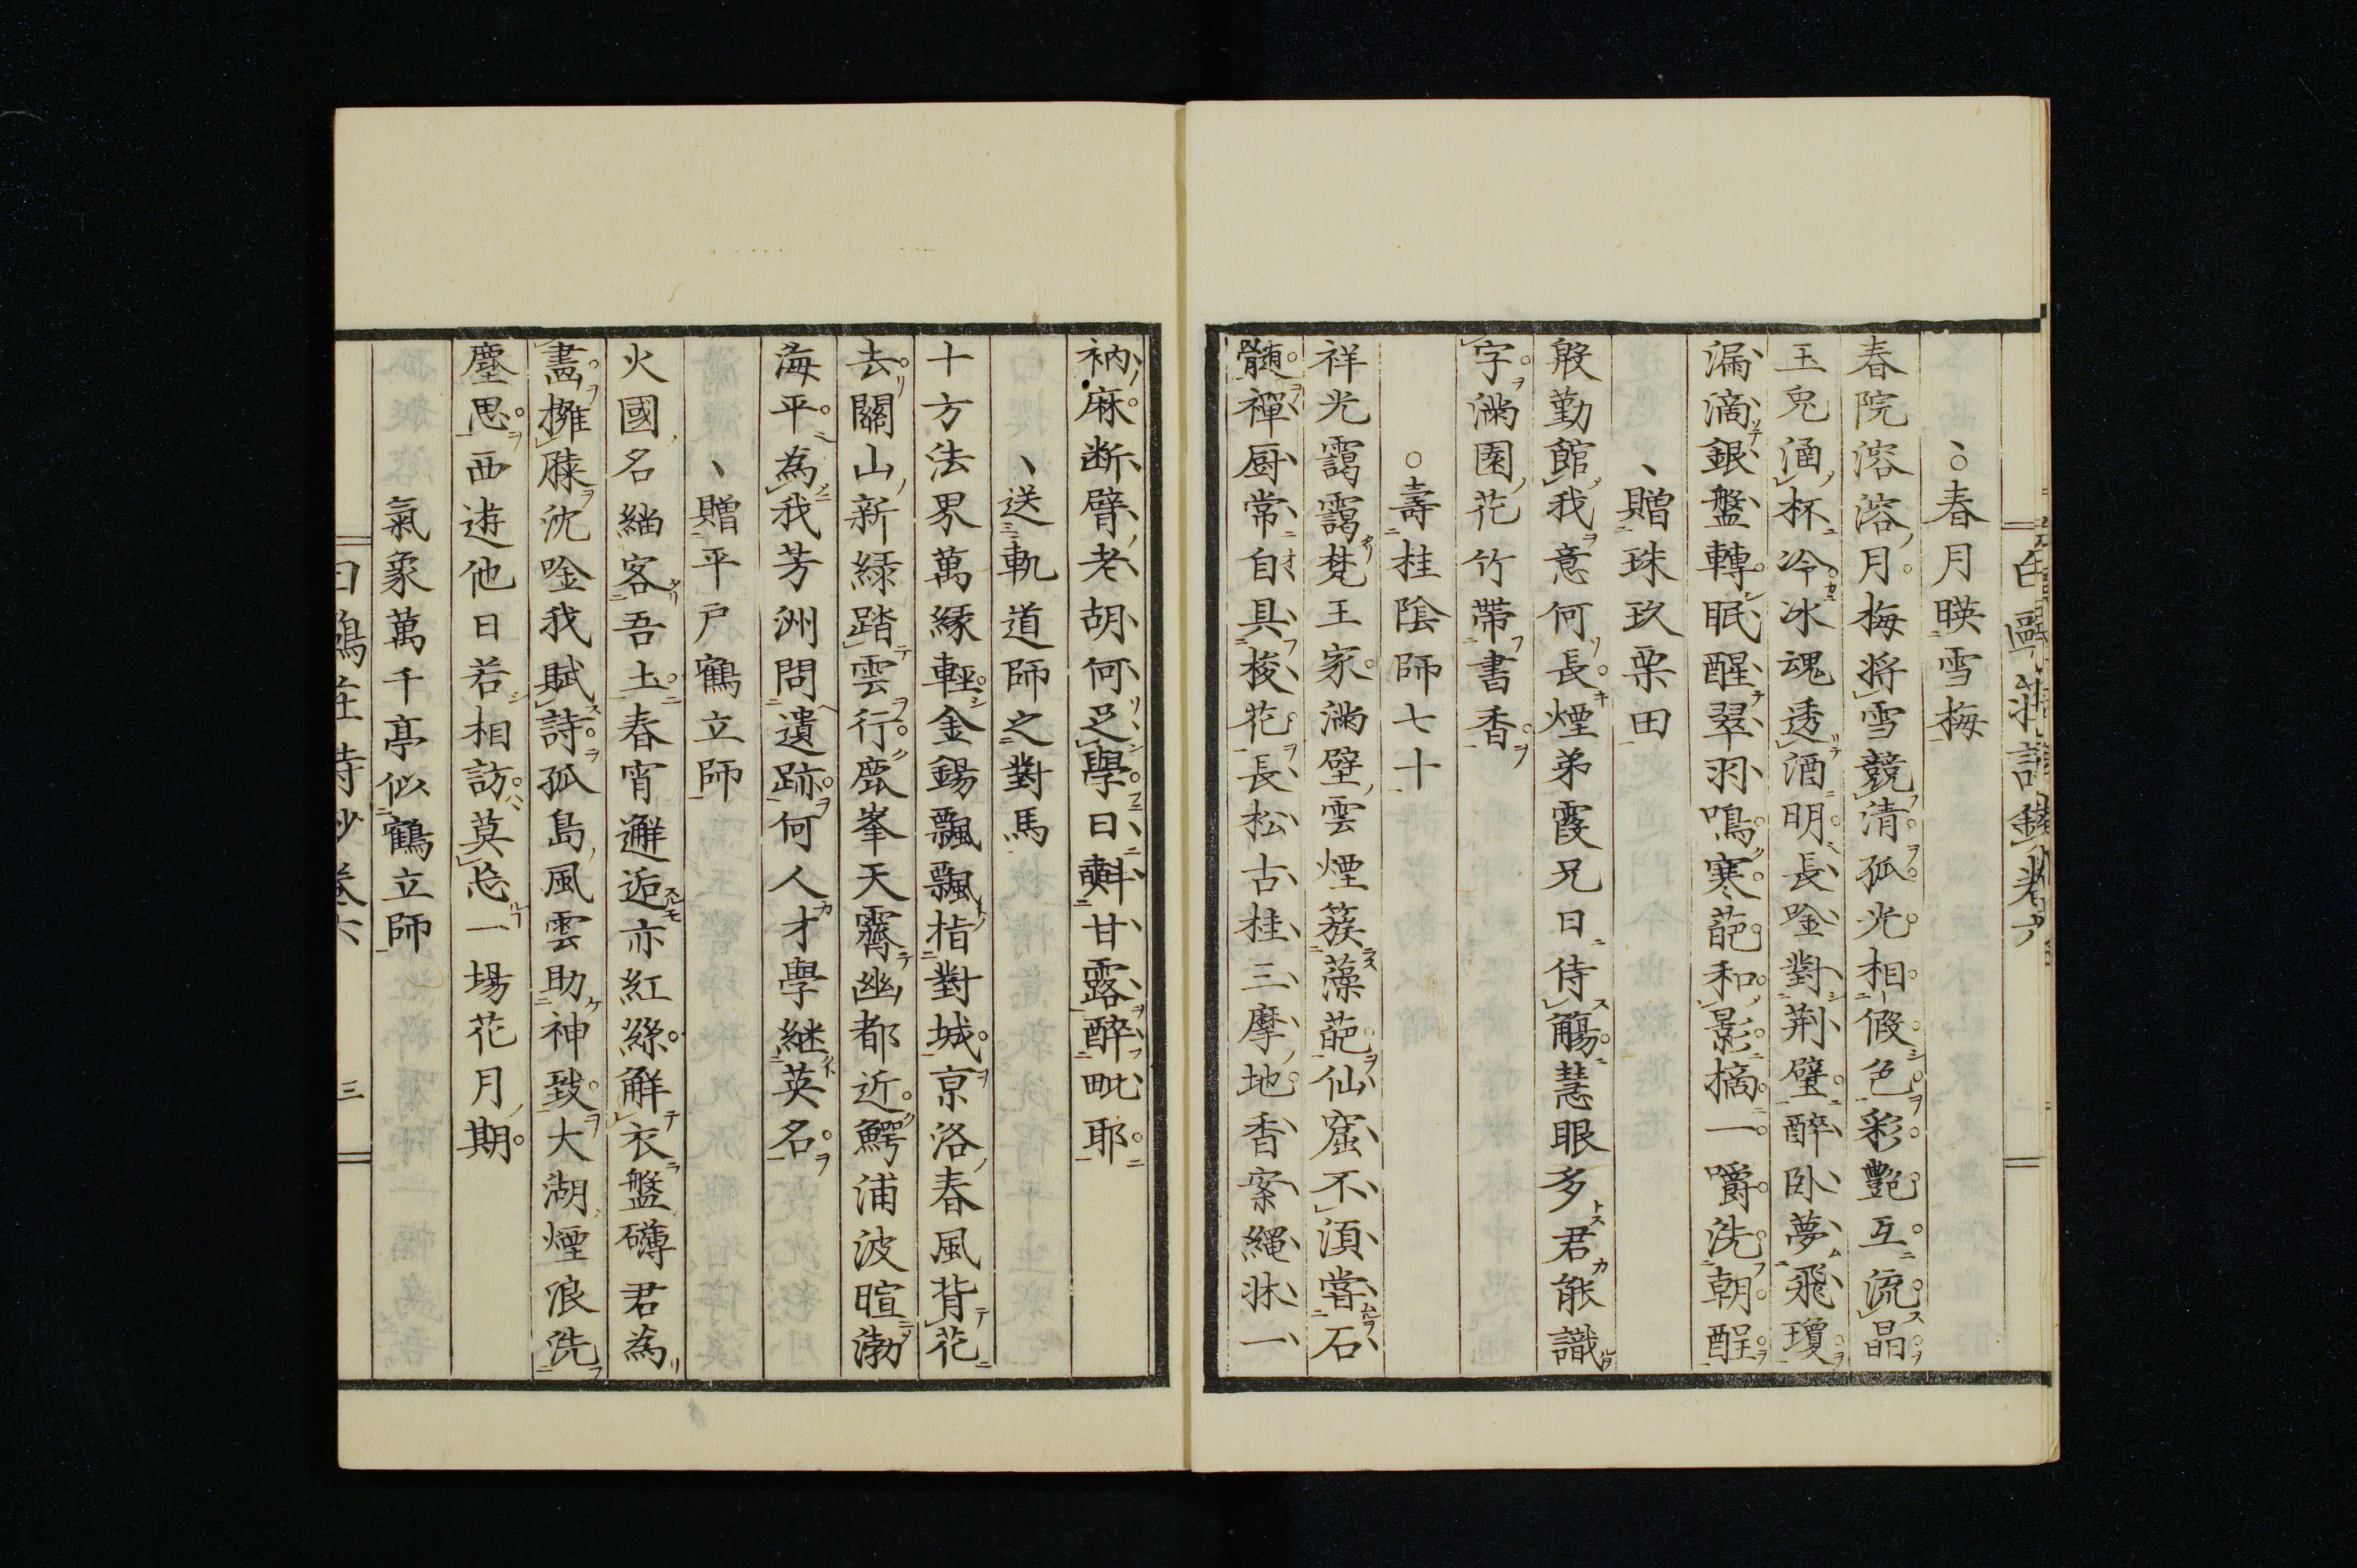 春月暎雪梅
春院溶溶月梅將雪競清孤光相假色彩艷互流晶
玉兎涵杯冷冰魂透酒明長唫對荆璧醉卧夢飛瓊
漏滴銀盤轉眠醒翠羽鳴寒葩和影摘一嚼洗朝酲
贈珠玖栗田
殷勤館我意何長煙弟霞兄日侍觴慧眼多君能識
字滿園花竹帶書香
壽桂陰師七十
祥光靄靄梵王家滿壁雲煙簇藻葩仙窟不須嘗石
髄禪厨常自具棱花長松古桂三摩地香案繩牀一
衲麻断臂老胡何足學日斟甘露醉毗耶
送軌道師之對馬
十方法界萬縁輕金錫飄飄指對城京洛春風背花
去關山新緑踏雲行鹿峯天霽幽都近鰐浦波暄渤
海平為我芳洲問遺跡何人才學継英名
贈平戸鶴立師
火國名緇客吾土春宵邂逅亦紅絲解衣盤礴君為
畫擁膝沈唫我賦詩孤島風雲助神致大湖煙浪洗
塵思西遊他日若相訪莫忘一場花月期
氣象萬千亭似鶴立師
白鷗莊詩鈔卷六
三